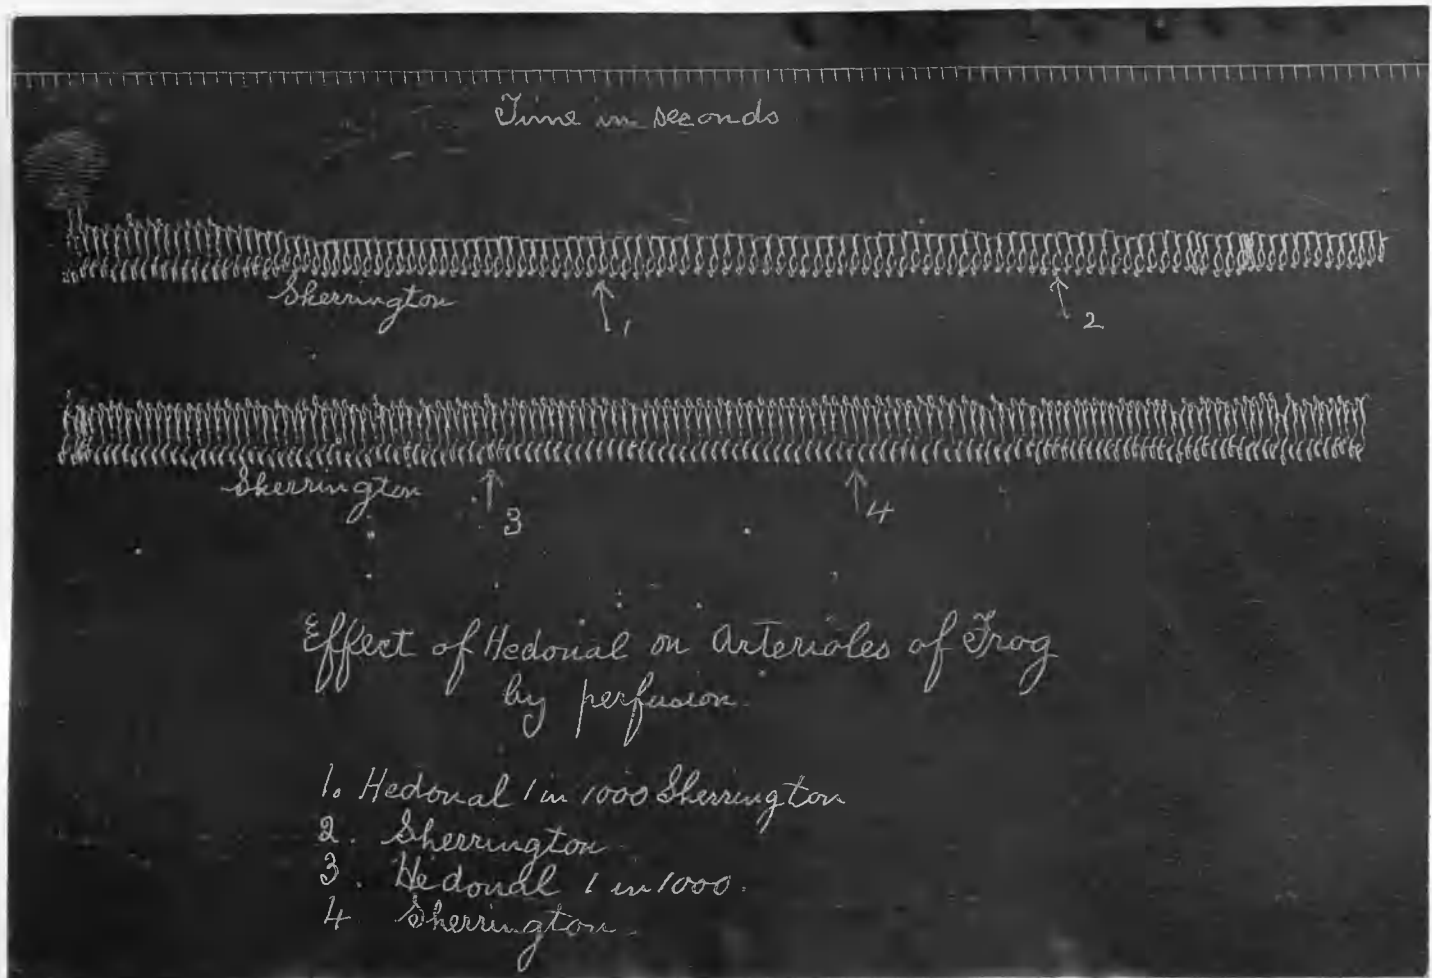 Time in seconds
Sherrington
1
2
Sherrington
3
4
Effect of Hedonal on Arterioles of Frog
by perfusion.
1. Hedonal 1 in 1000 Sherrington
2. Sherrington
3. Hedonal 1 in 1000.
4 Sherrington